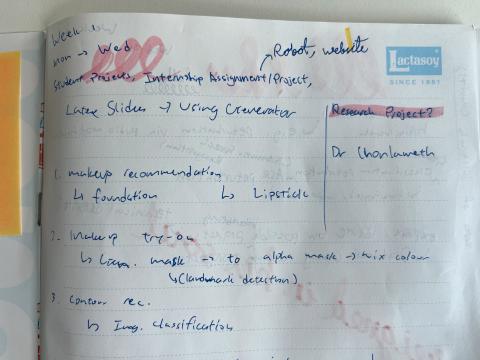 Week 1
mon → Wed
Robot, website
Student Projects, Internship Assignment/Project,
Lactasoy
SINCE 1981
Latex Slides → Using Generator
Research Project?
Dr Chonlameth
1. makeup recommendation
↳ foundation ↳ Lipstick
2. Makeup try-on
↳ mask → to alpha mask → mix colour
↳ (landmark detection)
3. contour rec.
↳ Imag. classification